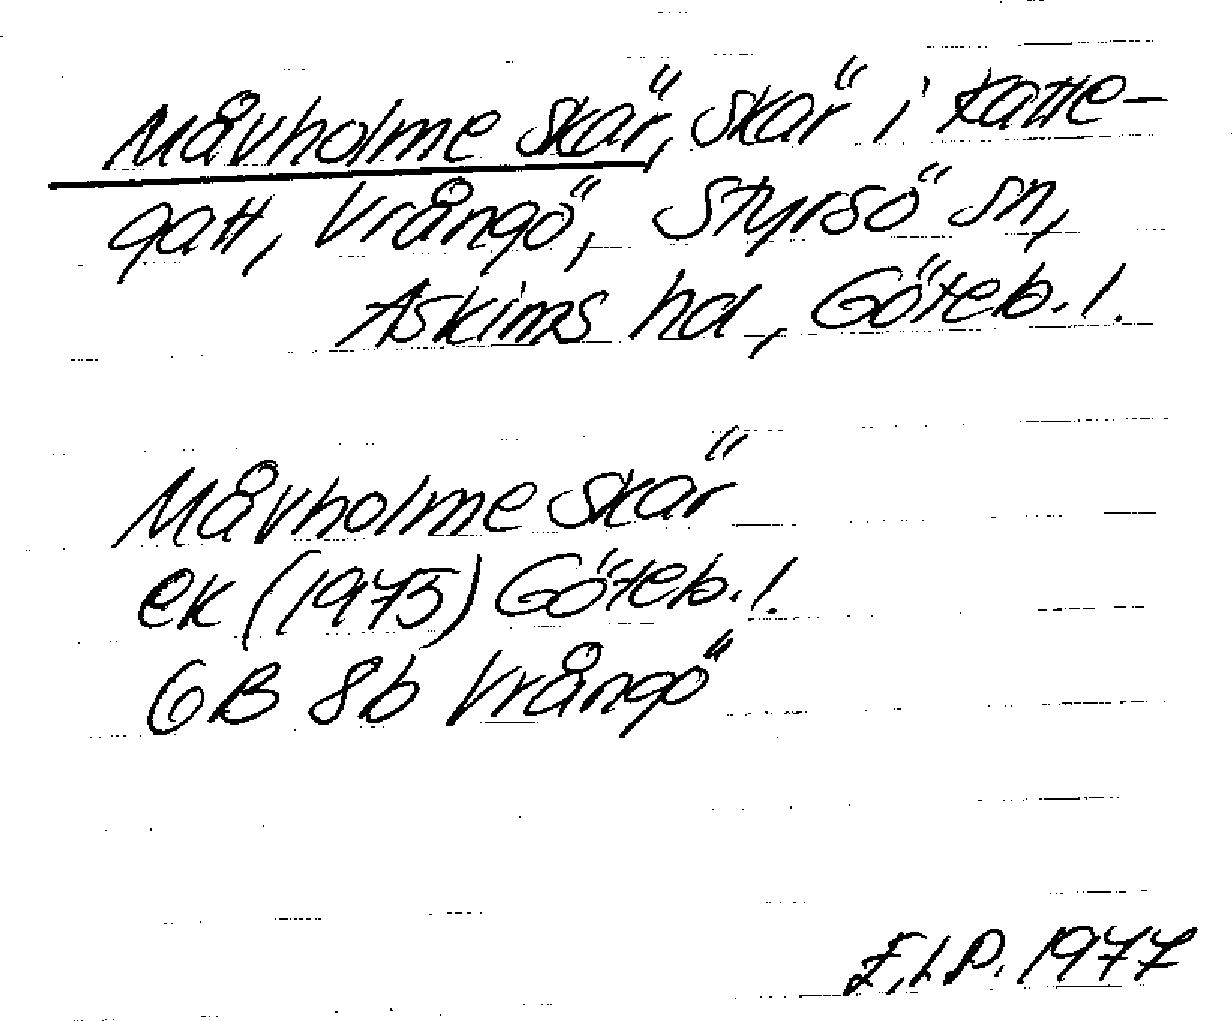 Måvholme skär, skär i Katte-
gatt, Vrångö, Styrsö sn,
Askims hd, Göteb. l.
Måvholme skär
ek (1975) Göteb. l.
6B 8b Vrångö
E.L.P. 1977